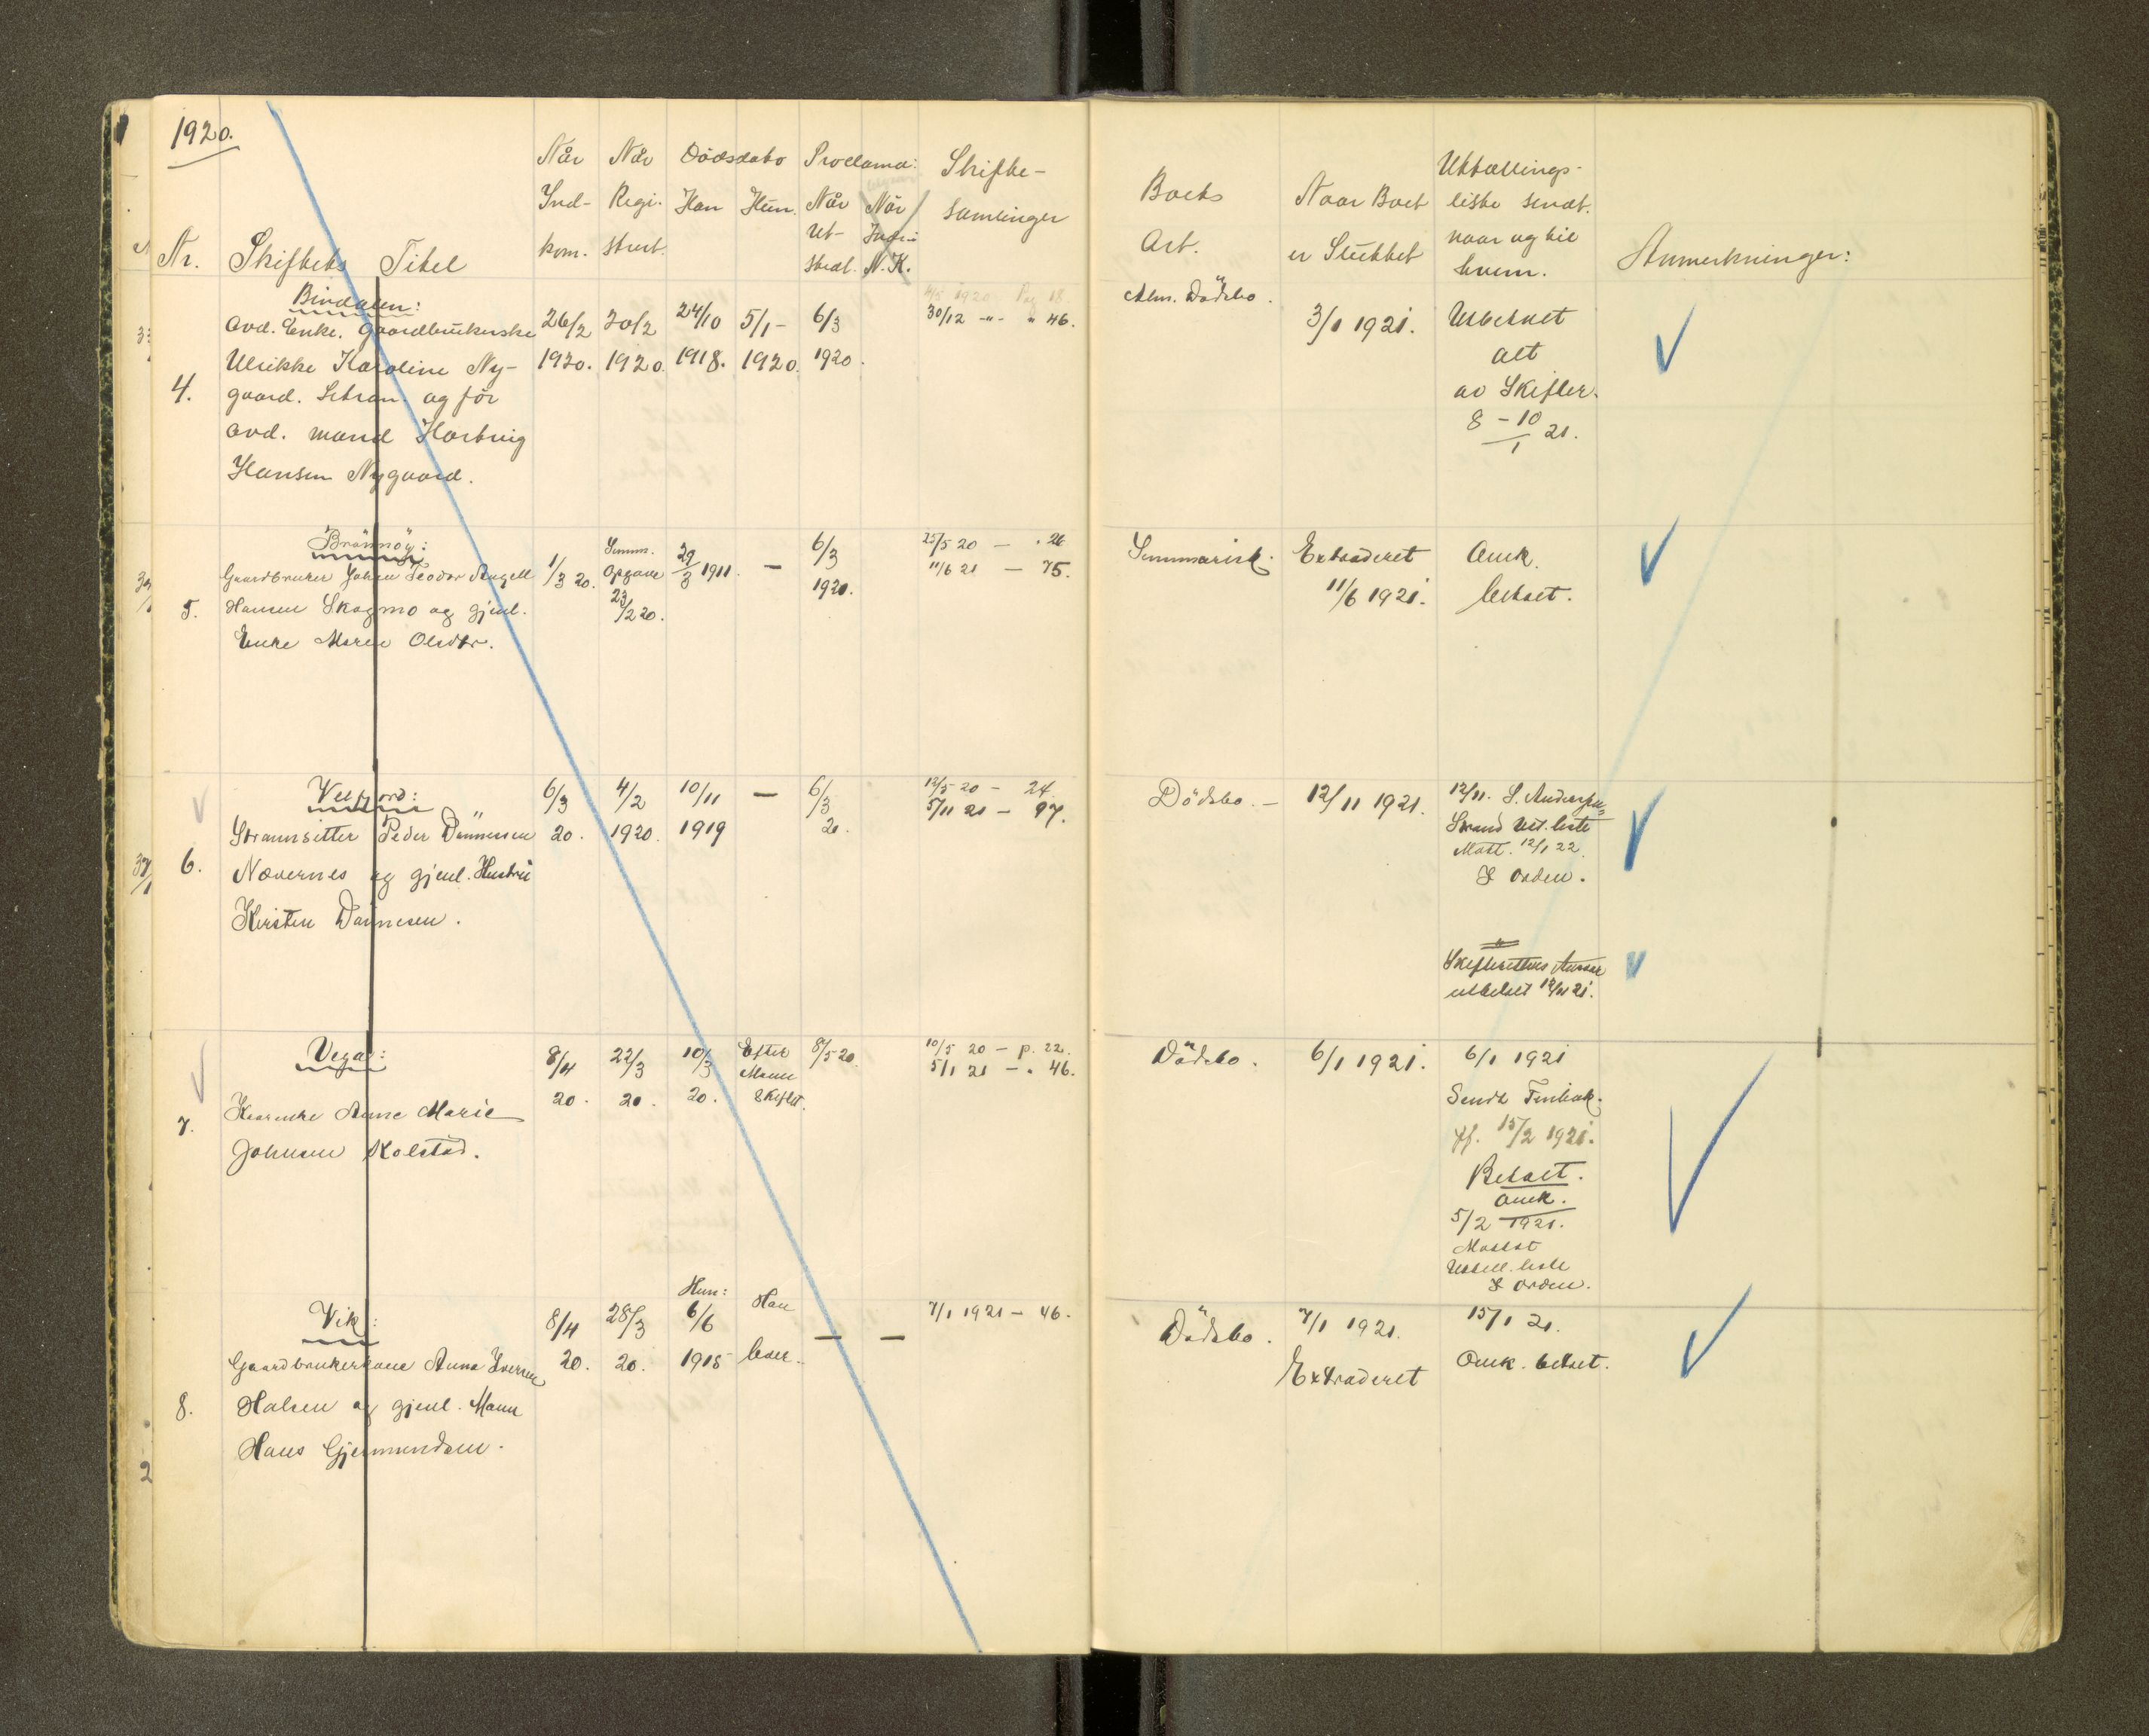 1920.
Nr. Skiftets Titel
Når Ind- kom.
Når Regi- strert.
Dødsdato Han Hun.
Proclama: Når Ut- stedt. Når N.K.
Skifte- samlinger
Boets Art.
Naar Boet er Sluttet
Utlællings- liste sendt. naar og til hvem.
Anmerkninger:
Bindalen:
4.
Avd. Enke. Gaardbrukerske
Ulrikke Karoline Ny-
gaard. og før
avd. mand Hartvig
Hansen Nygaard.
26/2 1920.
20/2 1920.
24/10 1918.
5/1 - 1920.
6/3 1920.
1920 Pag 18.
30/12 -"- " 46.
Alm. Dødsbo.
3/1 1921.
Utbetalt
alt
av Skifter.
8 - 10/1 21.
Brønnøy:
5.
Gaardbruker Johan Teodor Angell
Hansen Skogmo og gjenl.
Enke Maren Olsdtr.
1/3 20.
Summ. Opgave 23/2 20.
29/3 1911.
—
6/3 1920.
25/5 20 — " 26
11/6 21 — 75.
Summarisk.
Extraderet
11/6 1921.
Omk.
betalt.
Velfjord:
6.
Strannsitter Peder Dannesen
Nævernes og gjenl. Hustru
Kirsten Dannesen.
6/3 20.
4/2 1920.
10/11 1919
—
6/3 20.
12/5 20 - 24.
5/11 21 - 97.
Dødsbo. -
12/11 1921.
12/11. S. Anderssen
Strand Utl. liste
Mott. 12/1 22.
I orden.
Skifterettens
utbetalt 12/11 21.
Vega:
7.
Kaarenke Anne Marie
Johnsen Kolstad.
8/4 20.
22/3 20.
10/3 20.
Efter
Mann
Skiftet.
8/5 20.
10/5 20 - p. 22.
5/1 21 - " 46.
Dødsbo.
6/1 1921.
6/1 1921
Sendt
15/2 1921.
Betalt.
Omk.
5/2 1921.
Mottat
Utlell. liste
I orden.
Vik:
8.
Gaardbrukerkone Anna Iversen
Halsen og gjenl. Mann
Hans Gjermundsen.
8/4 20.
28/3 20.
Hun:
6/6 1915
Han
lever.
— —
7/1 1921 - 46.
Dødsbo.
7/1 1921.
Extraderet
15/1 21.
Omk. betalt.